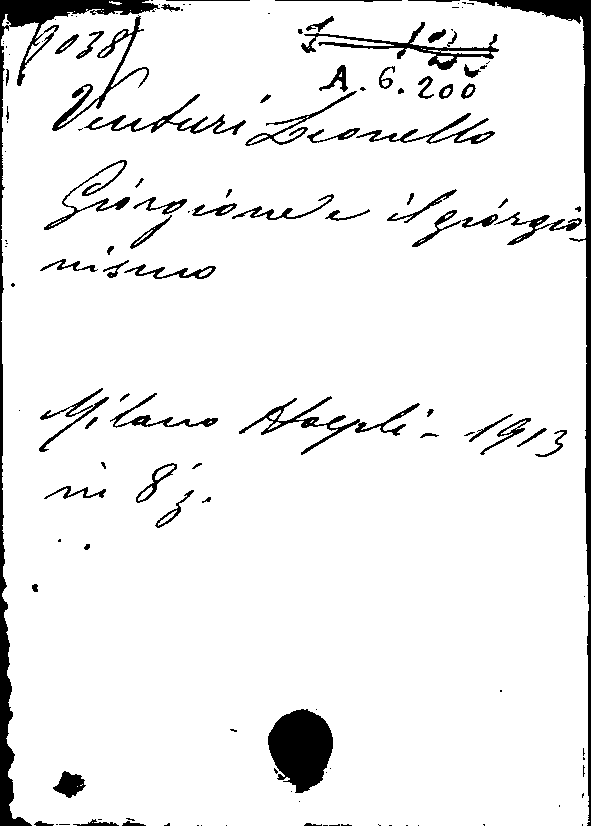 9038
A. 6. 200
Venturi Lionello
Giorgione e il giorgio-
nismo
Milano Hoepli - 1913
in 8 z.